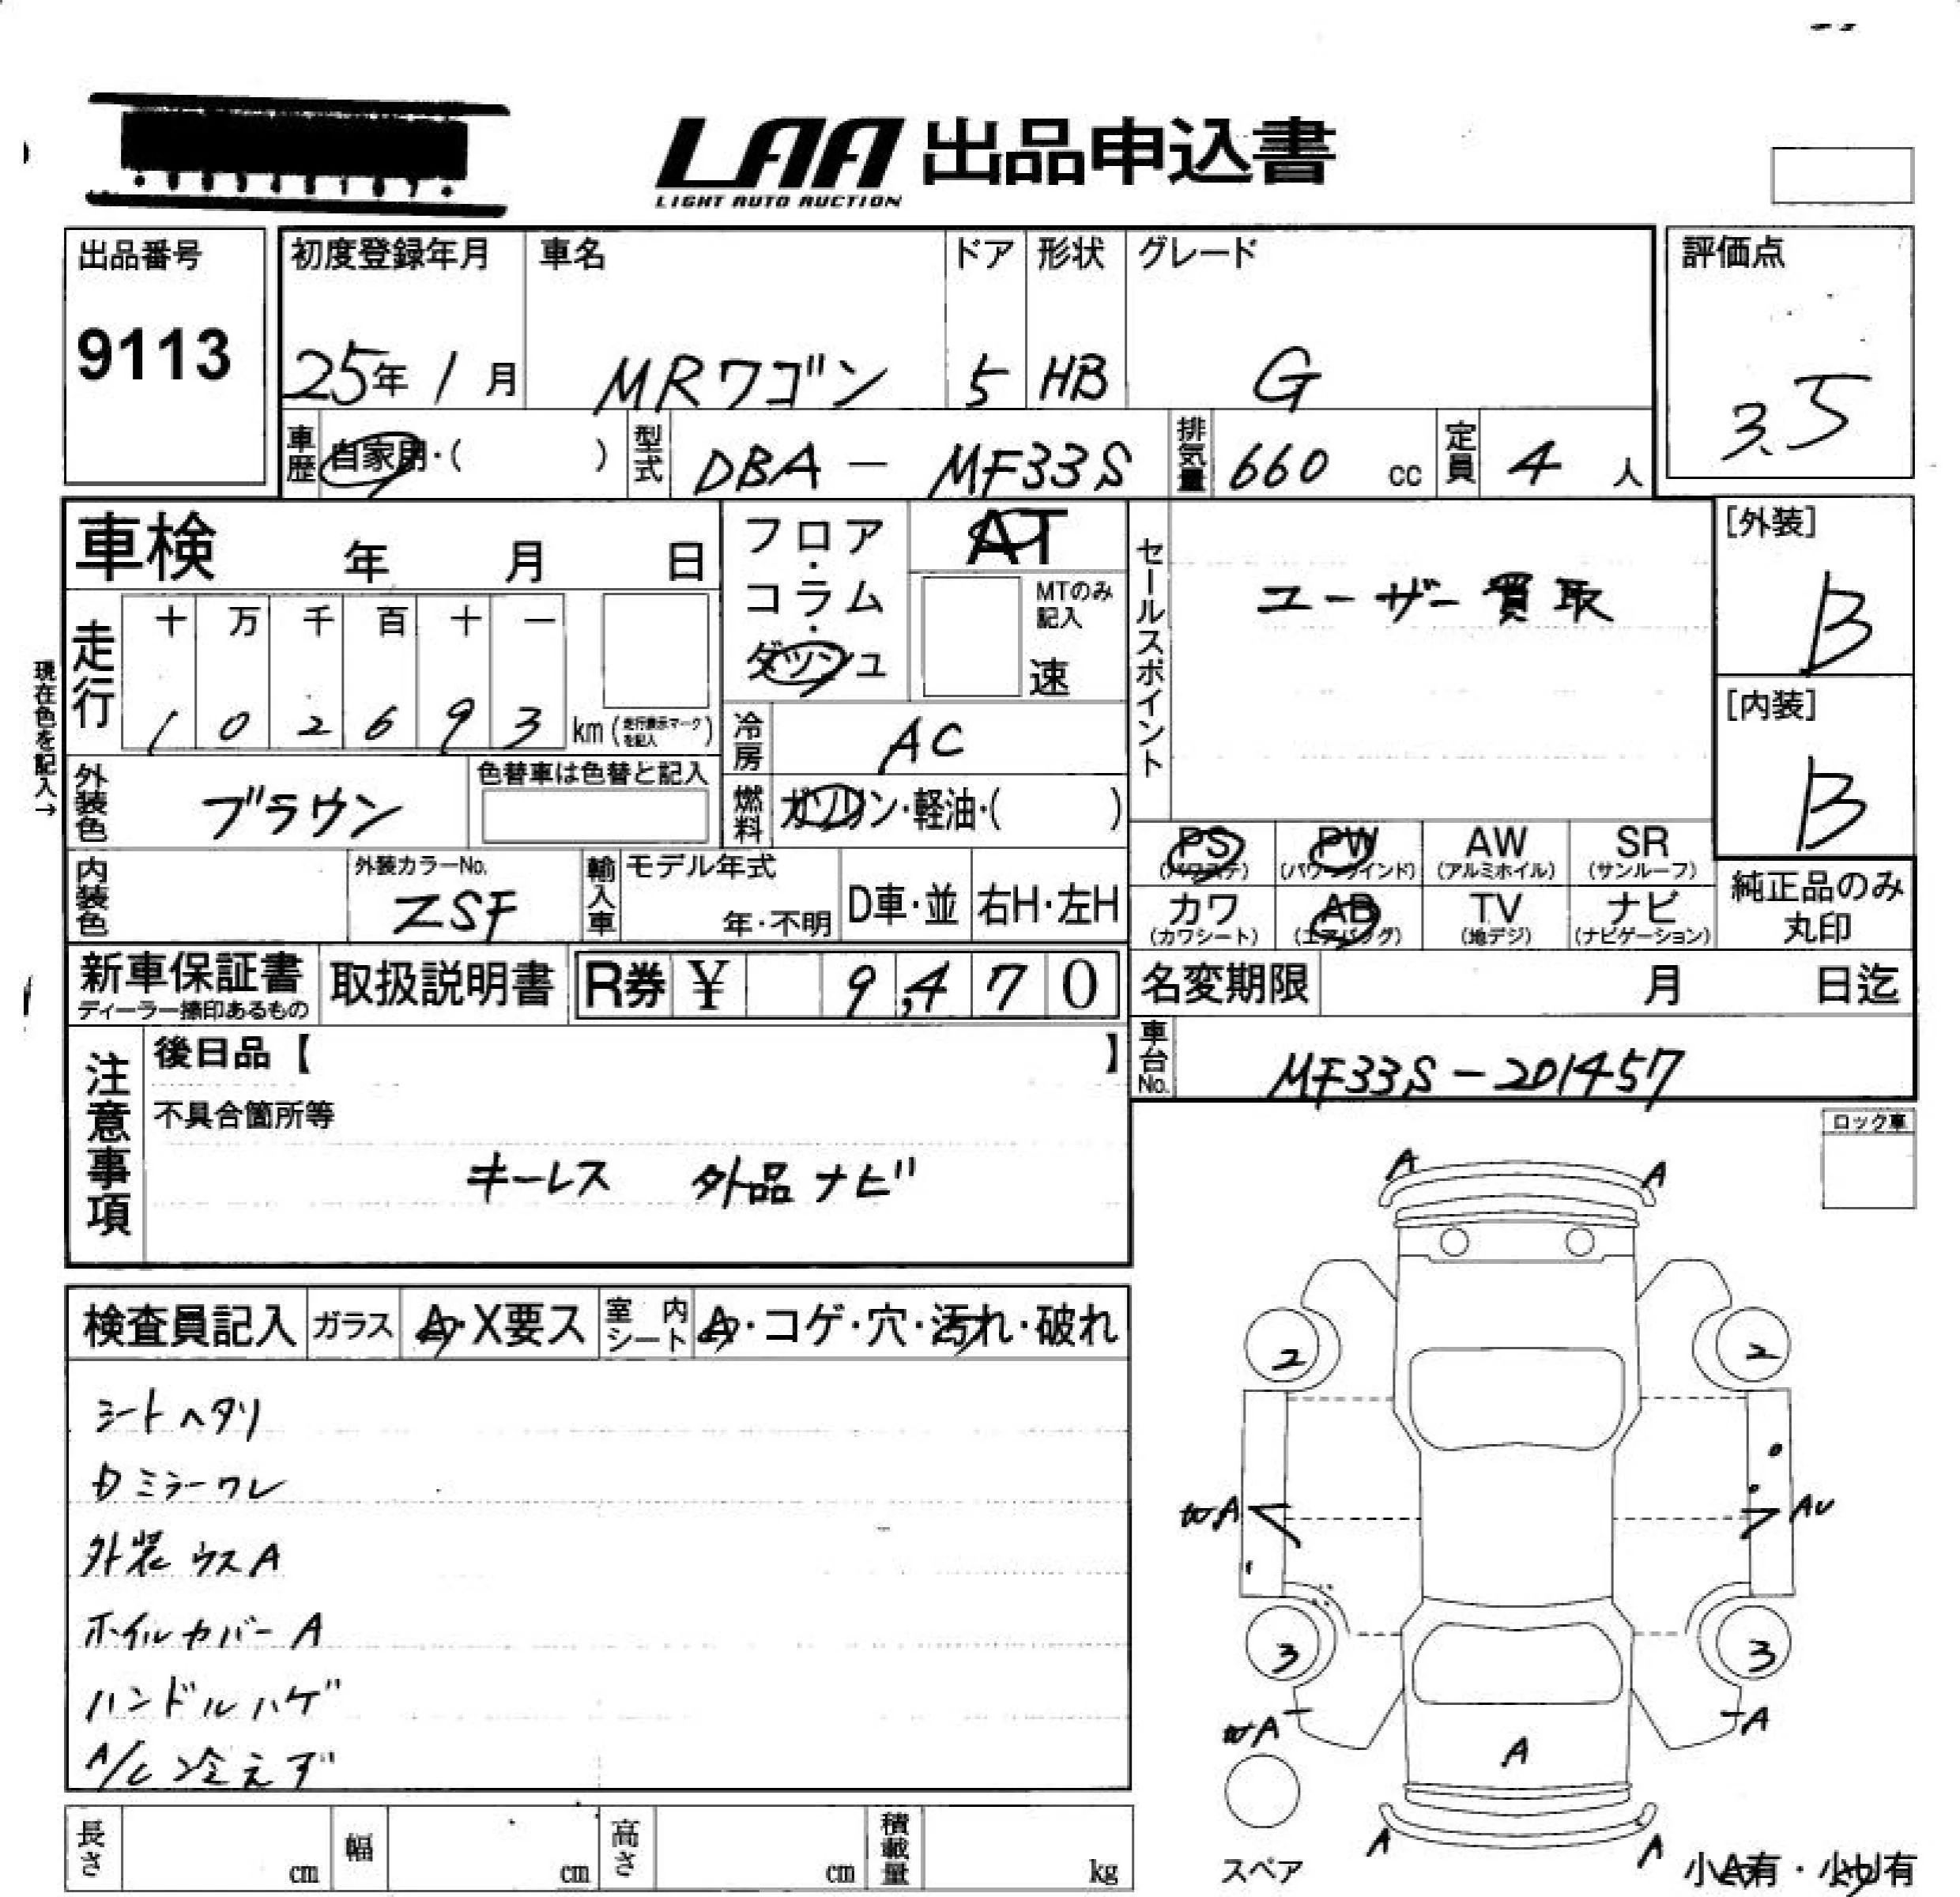 LAA 出品申込書
LIGHT AUTO AUCTION
出品番号
9113
初度登録年月
25年 1月
車名
MRワゴン
ドア
5
形状
HB
グレード
G
評価点
3.5
車歴
自家用・( )
型式
DBA - MF33S
排気量
660 cc
定員
4 人
車検 年 月 日
フロア・コラム・ダッシュ
AT
MTのみ記入
速
セールスポイント
ユーザー買取
[外装]
B
[内装]
B
現在色を記入→
走行
十 万 千 百 十 一
1 0 2 6 9 3 km (走行表示マークを記入)
冷房
AC
外装色
ブラウン
色替車は色替と記入
燃料
ガソリン・軽油・( )
PS (パワステ)
PW (パワーウインド)
AW (アルミホイル)
SR (サンルーフ)
カワ (カワシート)
AB (エアバッグ)
TV (地デジ)
ナビ (ナビゲーション)
純正品のみ丸印
内装色
外装カラーNo.
ZSF
輸入車
モデル年式
年・不明
D車・並
右H・左H
新車保証書
ディーラー捺印あるもの
取扱説明書
R券 ¥ 9,470
名変期限 月 日迄
車台No.
MF33S-201457
注意事項
後日品【 】
不具合箇所等
キーレス 外品ナビ
ロック車
検査員記入
ガラス
A・X要ス
室内シート
A・コゲ・穴・汚れ・破れ
シートヘタリ
外装ウスA
ホイルカバーA
ハンドルハゲ
A/C冷えず
A A
2 2
A
AU
3 3
A
A
A
A A
スペア
長さ cm
幅 cm
高さ cm
積載量 kg
小A有・小U有